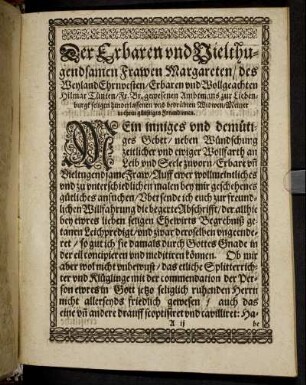 Der Erbaren vnd Vielthu-
gendsamen Frawen Margareten / des
Weyland Ehrnvesten / Erbaren vnd Wollgeachten
Hilmar gewesenen Ambtmans zur Lieben-
burgk seligen hinterlassenen vnd betrübten Witwen / Meiner
günstigen Freundinnen.
MEin inniges vnd demüti-
ges Gebet / neben Wündschung
zeitlicher vnd ewiger Wolffarth an
Leib vnd Seele zuvorn / Erbare vñ
Vieltugendsame Fraw / Auff ewer wolmeintliches
vnd zu vnterschiedlichen malen bey mir geschehenes
gütliches ansuchen / Vbersende ich euch zur freund-
lichen Willfahrung die begerte Abschrifft / der allhie
bey ewres lieben seligen Ehewirts Begrebniß ge-
tanen Leichpredigt / vnd zwar derselben vngeende-
ret / so gut ich sie damals durch Gottes Gnade in
der eil concipieren vnd meditiren können. Ob mir
aber wol nicht vnbewust / das etliche Splitterrich-
ter vnd Klüglinge mit der commendation der Per-
son ewres in Gott jetzo seliglich ruhenden Herrn
nicht allerseyds friedlich gewesen / auch das
eine vñ andere drauff scoptisiret vnd cavilliret: Ha-
A ij be